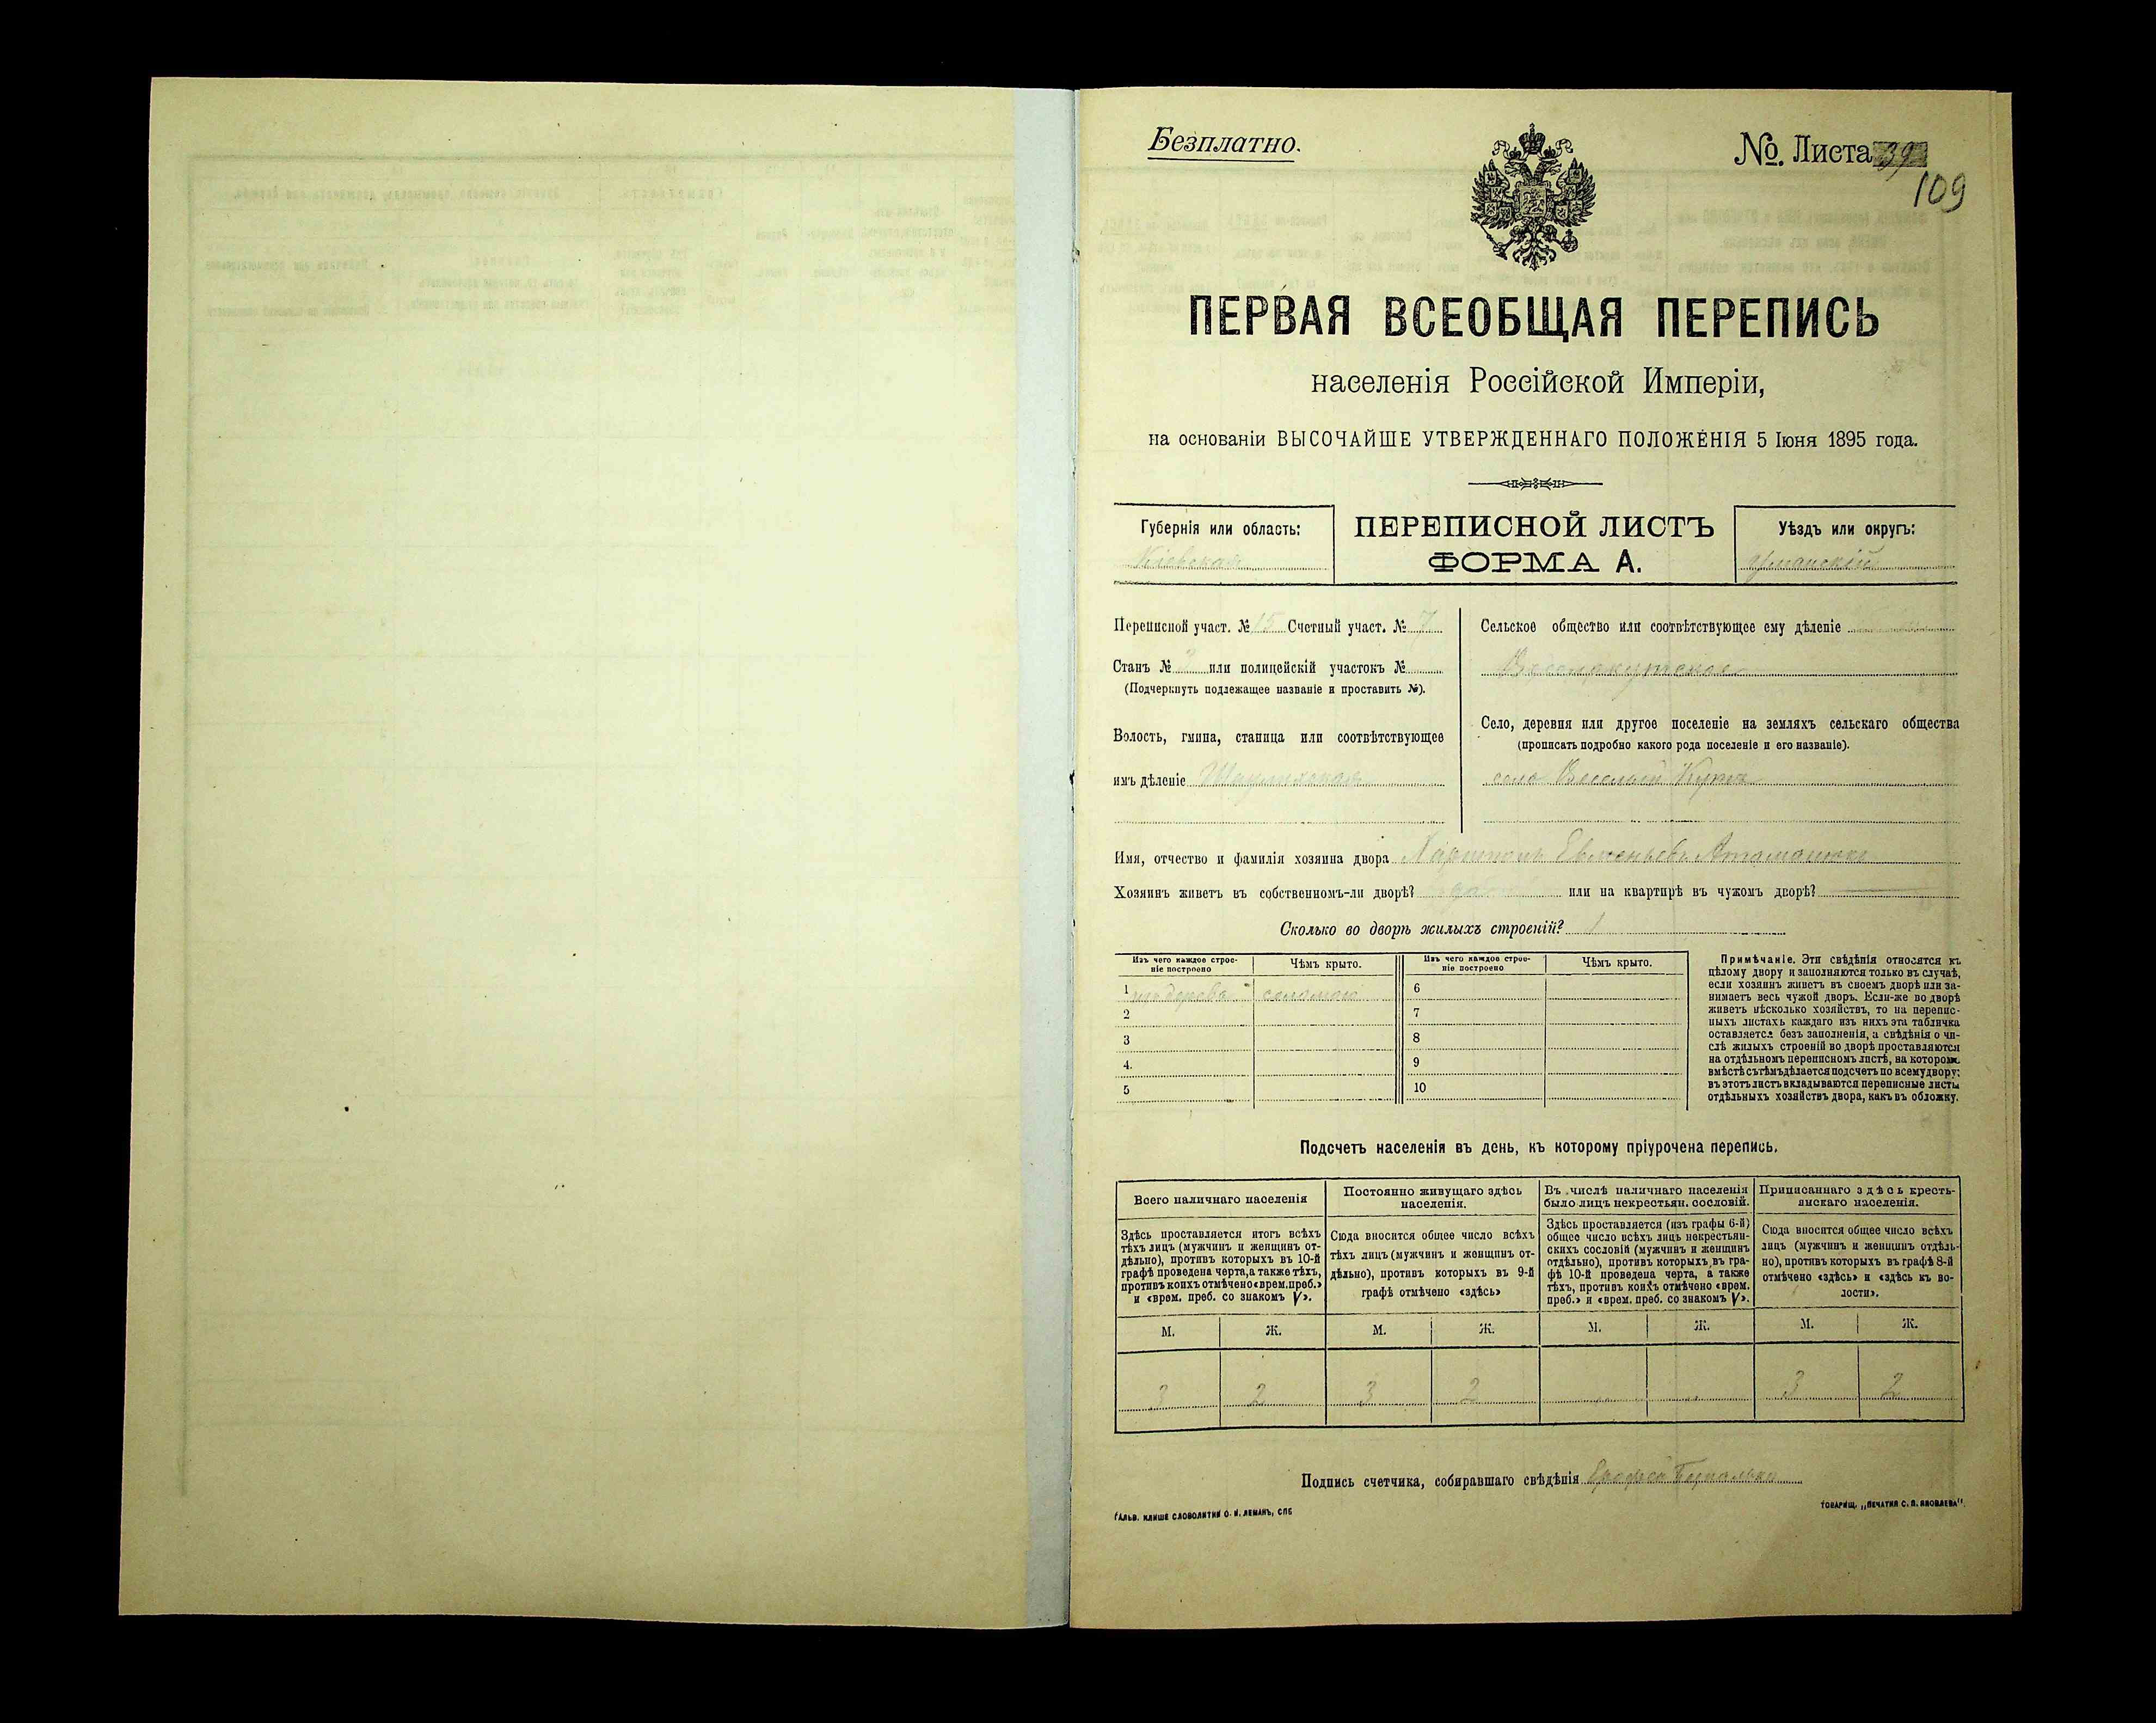 Безплатно.
№. Листа 39
109
ПЕРВАЯ ВСЕОБЩАЯ ПЕРЕПИСЬ
населенія Россійской Имперіи,
на основаніи ВЫСОЧАЙШЕ УТВЕРЖДЕННАГО ПОЛОЖЕНІЯ 5 Іюня 1895 года.
Губернія или область:
Кіевская
ПЕРЕПИСНОЙ ЛИСТЪ
ФОРМА А.
Уѣздъ или округъ:
Уманскій
Переписной участ. № 15 Счетный участ. № 7
Станъ № или полицейскій участокъ №
(Подчеркнуть подлежащее названіе и проставить №).
Волость, гмина, станица или соотвѣтствующее
имъ дѣленіе
Сельское общество или соотвѣтствующее ему дѣленіе
Веселокутское
Село, деревня или другое поселеніе на земляхъ сельскаго общества
(прописать подробно какого рода поселеніе и его названіе).
село Веселый Кутъ
Имя, отчество и фамилія хозяина двора Харитонъ Евменьевъ Атаманюкъ
Хозяинъ живетъ въ собственномъ-ли дворѣ? да или на квартирѣ въ чужомъ дворѣ?
Сколько во дворѣ жилыхъ строеній? 1
Изъ чего каждое строе-
ніе построено
Чѣмъ крыто.
Изъ чего каждое строе-
ніе построено
Чѣмъ крыто.
1 изъ дерева соломою
2
3
4.
5
6
7
8
9
10
Примѣчаніе. Эти свѣдѣнія относятся къ
цѣлому двору и заполняются только въ случаѣ,
если хозяинъ живетъ въ своемъ дворѣ или за-
нимаетъ весь чужой дворъ. Если-же во дворѣ
живетъ нѣсколько хозяйствъ, то на перепис-
ныхъ листахъ каждаго изъ нихъ эта табличка
оставляется безъ заполненія, а свѣдѣнія о чи-
слѣ жилыхъ строеній во дворѣ проставляются
на отдѣльномъ переписномъ листѣ, на которомъ
вмѣстѣ съ тѣмъ дѣлается подсчетъ по всему двору:
въ этотъ листъ вкладываются переписные листы
отдѣльныхъ хозяйствъ двора, какъ въ обложку.
Подсчетъ населенія въ день, къ которому пріурочена перепись.
Всего наличнаго населенія
Здѣсь проставляется итогъ всѣхъ
тѣхъ лицъ (мужчинъ и женщинъ от-
дѣльно), противъ которыхъ въ 10-й
графѣ проведена черта, а также тѣхъ,
противъ коихъ отмѣчено «врем. преб.»
и «врем. преб. со знакомъ V».
Постоянно живущаго здѣсь
населенія.
Сюда вносится общее число всѣхъ
тѣхъ лицъ (мужчинъ и женщинъ от-
дѣльно), противъ которыхъ въ 9-й
графѣ отмѣчено «здѣсь»
Въ числѣ наличнаго населенія
было лицъ некрестьян. сословій.
Здѣсь проставляется (изъ графы 6-й)
общее число всѣхъ лицъ некрестьян-
скихъ сословій (мужчинъ и женщинъ
отдѣльно), противъ которыхъ въ гра-
фѣ 10-й проведена черта, а также
тѣхъ, противъ коихъ отмѣчено «врем.
преб.» и «врем. преб. со знакомъ V».
Приписаннаго здѣсь кресть-
янскаго населенія.
Сюда вносится общее число всѣхъ
лицъ (мужчинъ и женщинъ отдѣль-
но), противъ которыхъ въ графѣ 8-й
отмѣчено «здѣсь» и «здѣсь къ во-
лости».
М. Ж. М. Ж. М. Ж. М. Ж.
3 2 3 2 3 2
Подпись счетчика, собиравшаго свѣдѣнія
ГАЛЬВ. КЛИШЕ СЛОВОЛИТНИ О. И. ЛЕМАНЪ, СПБ
ТОВАРИЩ. „ПЕЧАТНЯ С. П. ЯКОВЛЕВА".